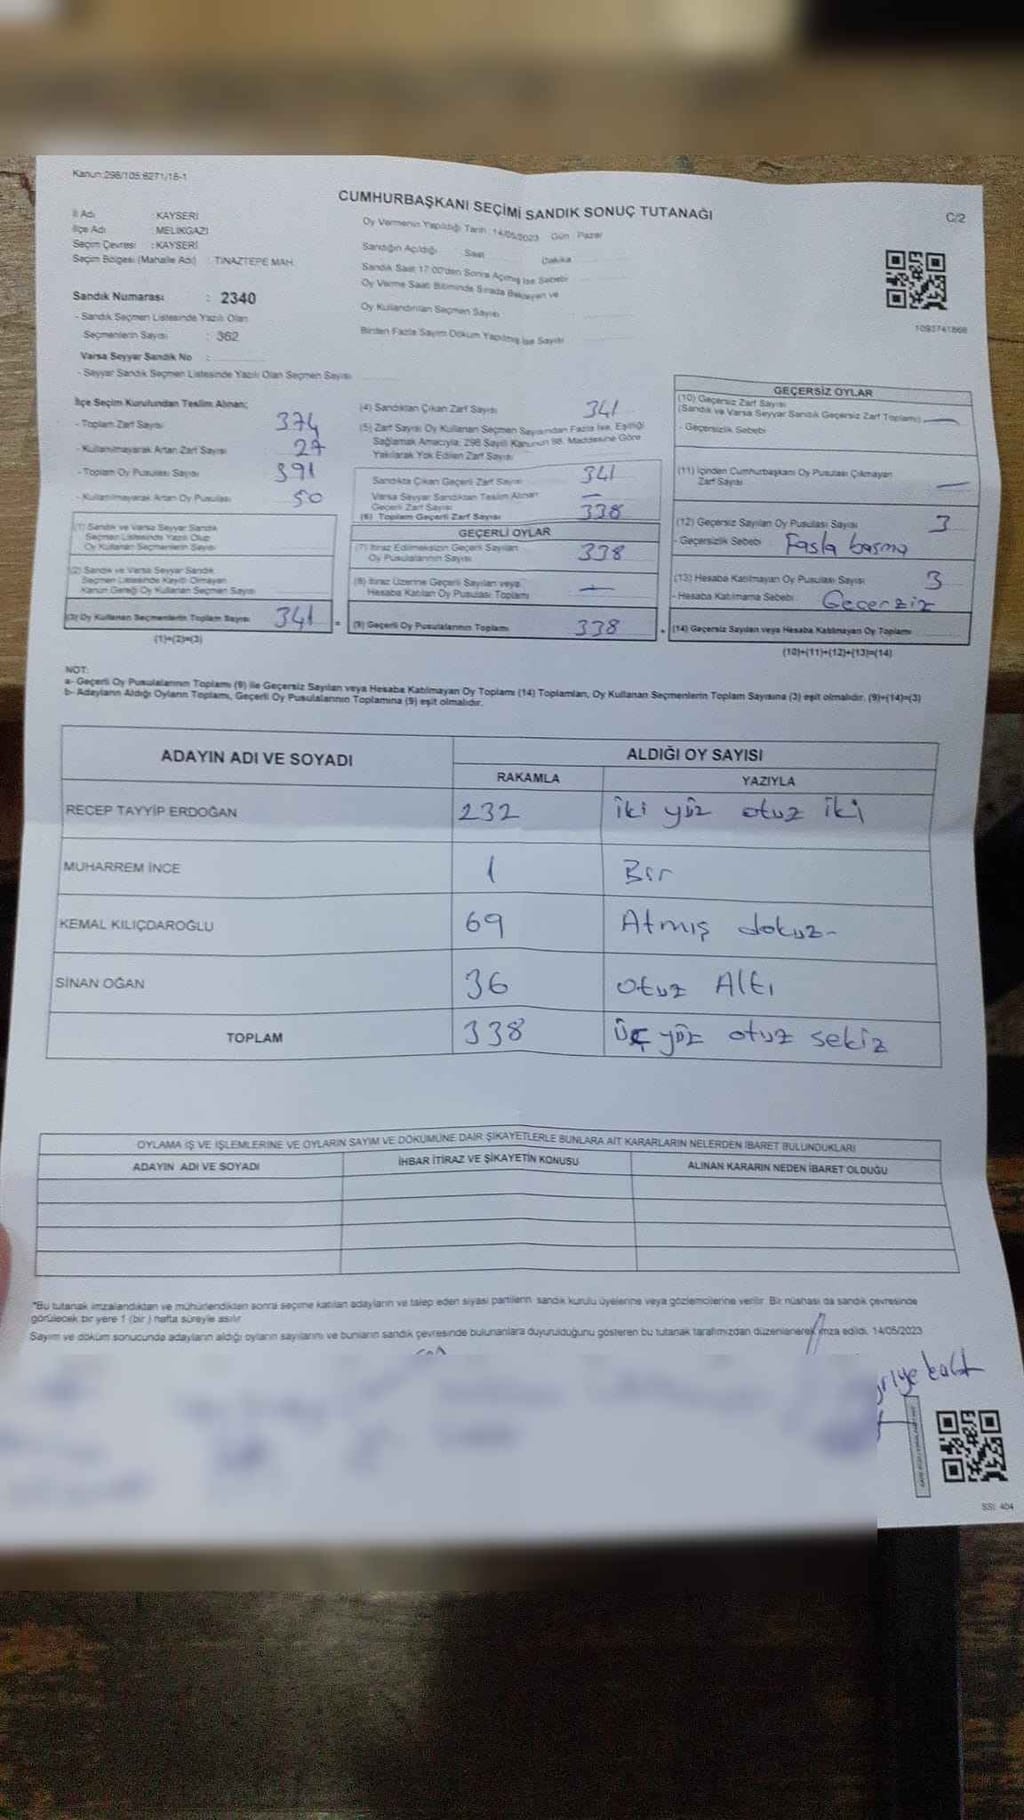 Kanun:298/105:6271/16-1
CUMHURBAŞKANI SEÇİMİ SANDIK SONUÇ TUTANAĞI
C/2
İl Adı KAYSERİ
İlçe Adı MELİKGAZİ
Seçim Çevresi : KAYSERİ
Seçim Bölgesi (Mahalle Adı) TINAZTEPE MAH.
Sandık Numarası : 2340
- Sandık Seçmen Listesinde Yazılı Olan
Seçmenlerin Sayısı : 362
Varsa Seyyar Sandık No :
- Seyyar Sandık Seçmen Listesinde Yazılı Olan Seçmen Sayısı
Oy Vermenin Yapıldığı Tarih :14/05/2023 Gün : Pazar
Sandığın Açıldığı Saat Dakika
Sandık Saat 17:00'den Sonra Açılmış İse Sebebi
Oy Verme Saat Bitiminde Sırada Bekleyen ve
Oy Kullandırılan Seçmen Sayısı
Birden Fazla Sayım Döküm Yapılmış İse Sayısı
1093741868
İlçe Seçim Kurulundan Teslim Alınan;
- Toplam Zarf Sayısı 374
- Kullanılmayarak Artan Zarf Sayısı 27
- Toplam Oy Pusulası Sayısı 391
- Kullanılmayarak Artan Oy Pusulası 50
(1) Sandık ve Varsa Seyyar Sandık
Seçmen Listesinde Yazılı Olup
Oy Kullanan Seçmenlerin Sayısı
(2) Sandık ve Varsa Seyyar Sandık
Seçmen Listesinde Kayıtlı Olmayan
Kanun Gereği Oy Kullanan Seçmen Sayısı
(3) Oy Kullanan Seçmenlerin Toplam Sayısı 341 =
(1)+(2)=(3)
(4) Sandıktan Çıkan Zarf Sayısı 341
(5) Zarf Sayısı Oy Kullanan Seçmen Sayısından Fazla İse, Eşitliği
Sağlamak Amacıyla; 298 Sayılı Kanunun 98. Maddesine Göre
Yakılarak Yok Edilen Zarf Sayısı
Sandıkta Çıkan Geçerli Zarf Sayısı 341
Varsa Seyyar Sandıktan Teslim Alınan
Geçerli Zarf Sayısı —
(6) Toplam Geçerli Zarf Sayısı 338
GEÇERLİ OYLAR
(7) İtiraz Edilmeksizin Geçerli Sayılan
Oy Pusulalarının Sayısı 338
(8) İtiraz Üzerine Geçerli Sayılan veya
Hesaba Katılan Oy Pusulası Toplamı
(9) Geçerli Oy Pusulalarının Toplamı 338 +
GEÇERSİZ OYLAR
(10) Geçersiz Zarf Sayısı
(Sandık ve Varsa Seyyar Sandık Geçersiz Zarf Toplamı) —
- Geçersizlik Sebebi
(11) İçinden Cumhurbaşkanı Oy Pusulası Çıkmayan
Zarf Sayısı —
(12) Geçersiz Sayılan Oy Pusulası Sayısı 3
- Geçersizlik Sebebi Fasla basma
(13) Hesaba Katılmayan Oy Pusulası Sayısı 3
- Hesaba Katılmama Sebebi Geçerziz
(14) Geçersiz Sayılan veya Hesaba Katılmayan Oy Toplamı
(10)+(11)+(12)+(13)=(14)
NOT:
a- Geçerli Oy Pusulalarının Toplamı (9) ile Geçersiz Sayılan veya Hesaba Katılmayan Oy Toplamı (14) Toplamları, Oy Kullanan Seçmenlerin Toplam Sayısına (3) eşit olmalıdır. (9)+(14)=(3)
b- Adayların Aldığı Oyların Toplamı, Geçerli Oy Pusulalarının Toplamına (9) eşit olmalıdır.
ADAYIN ADI VE SOYADI ALDIĞI OY SAYISI
RAKAMLA YAZIYLA
RECEP TAYYİP ERDOĞAN 232 iki yüz otuz iki
MUHARREM İNCE 1 Bir
KEMAL KILIÇDAROĞLU 69 Atmış dokuz-
SİNAN OĞAN 36 otuz Altı
TOPLAM 338 üç yüz otuz sekiz
OYLAMA İŞ VE İŞLEMLERİNE VE OYLARIN SAYIM VE DÖKÜMÜNE DAİR ŞİKAYETLERLE BUNLARA AİT KARARLARIN NELERDEN İBARET BULUNDUKLARI
ADAYIN ADI VE SOYADI İHBAR İTİRAZ VE ŞİKAYETİN KONUSU ALINAN KARARIN NEDEN İBARET OLDUĞU
*Bu tutanak imzalandıktan ve mühürlendikten sonra seçime katılan adayların ve talep eden siyasi partilerin sandık kurulu üyelerine veya gözlemcilerine verilir. Bir nüshası da sandık çevresinde
görülecek bir yere 1 (bir ) hafta süreyle asılır
Sayım ve döküm sonucunda adayların aldığı oyların sayılarını ve bunların sandık çevresinde bulunanlara duyurulduğunu gösteren bu tutanak tarafımızdan düzenlenerek imza edildi. 14/05/2023
SSI: 404